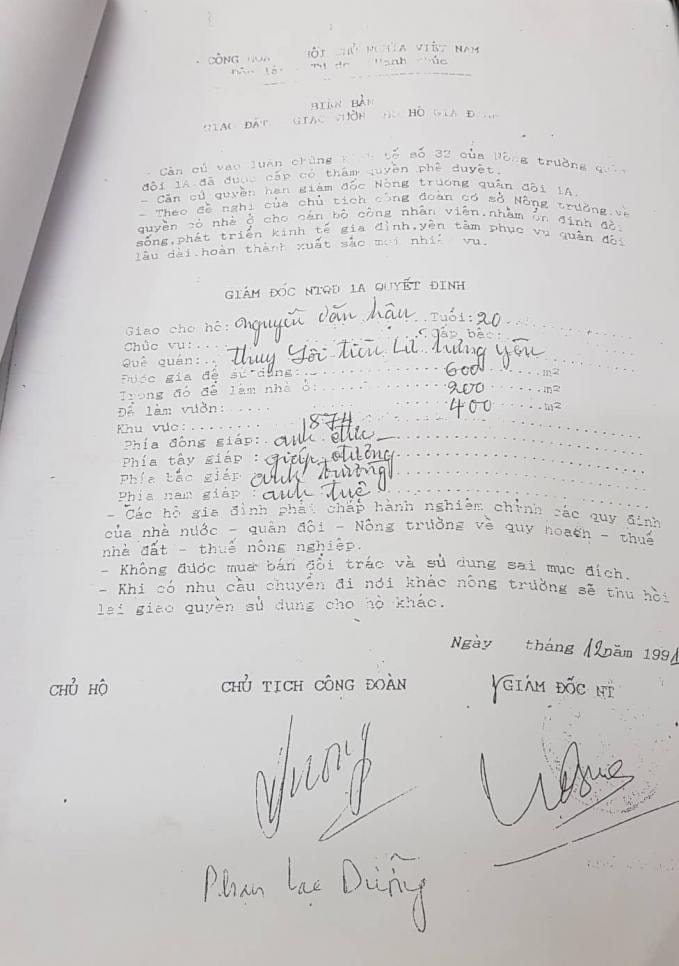 CÔNG HOÀ HỘI CHỦ NGHĨA VIỆT NAM
BIÊN BẢN
GIAO ĐẤT GIAO VƯỜN HỘ GIA ĐÌNH
- Căn cứ vào luân chứng tế số 32 của Nông trường quân
đội 1A.đã được cấp có thẩm quyền phê duyệt.
- Căn cứ quyền hạn giám đốc Nông trường quân đội 1A.
- Theo đề nghị của chủ tịch công đoàn cơ sở Nông trường.về
quyền có nhà ở cho cán bộ công nhân viên.nhằm ổn định đời
sống.phát triển kinh tế gia đình.yên tâm phục vụ quân đội
lâu dài.hoàn thành xuất sắc mọi nhiệm vụ.
GIÁM ĐỐC NTQĐ 1A QUYẾT ĐỊNH
Giao cho hộ: Nguyễn Văn Hậu Tuổi: 20
Chức vụ: Cấp bậc:
Quê quán: Thụy Lôi Tiên Lữ Hưng Yên
Được giao để sử dụng: 600 m²
Trong đó để làm nhà ở: 200 m²
Để làm vườn: 400 m²
Khu vực: 874
Phía đông giáp: anh
Phía tây giáp : giáp đường
Phía bắc giáp anh Trường
Phía nam giáp : anh Tuệ
- Các hộ gia đình phải chấp hành nghiêm chỉnh các quy định
của nhà nước - quân đội - Nông trường về quy hoạch - thuế
nhà đất - thuế nông nghiệp.
- Không được mua bán đổi trác và sử dụng sai mục đích.
- Khi có nhu cầu chuyển đi nơi khác nông trường sẽ thu hồi
lại giao quyền sử dụng cho hộ khác.
Ngày tháng 12 năm 1991
CHỦ HỘ CHỦ TỊCH CÔNG ĐOÀN GIÁM ĐỐC NT
Phan Lạc Dũng